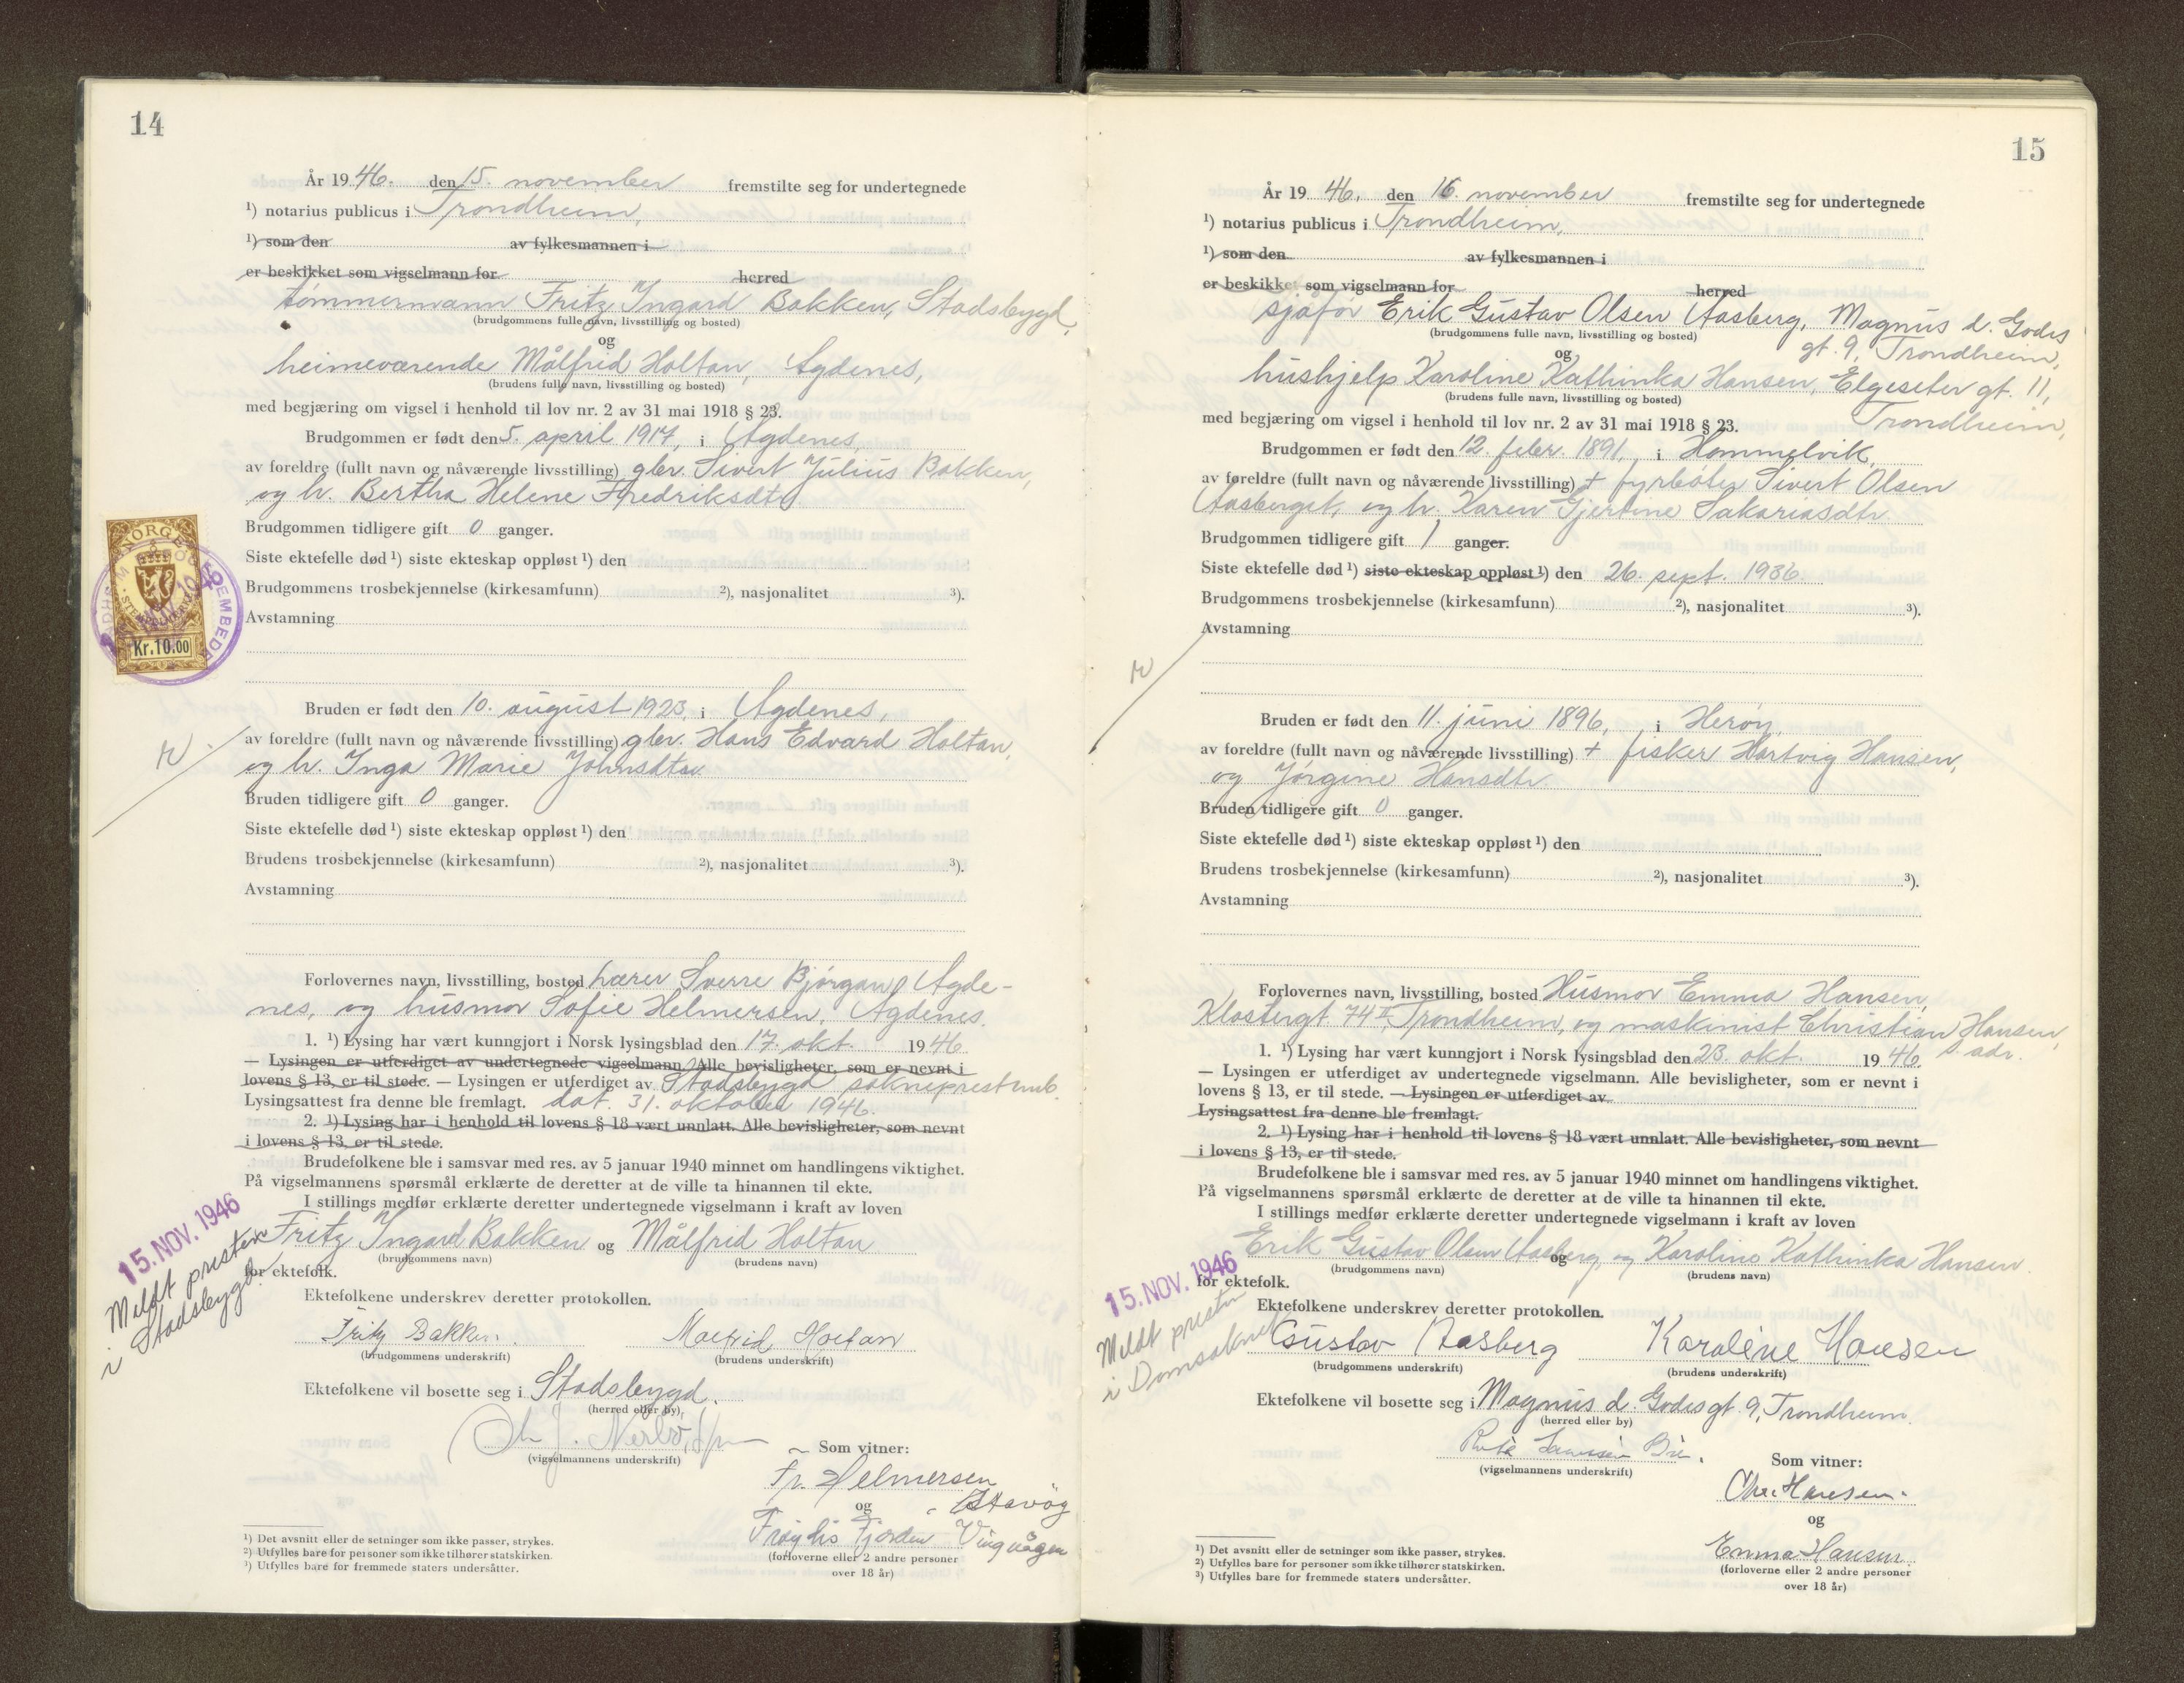 14
År 1946. den 15. november fremstilte seg for undertegnede
¹) notarius publicus i Trondheim,
¹) som den av fylkesmannen i
er beskikket som vigselmann for herred
tømmermann Fritz Ingard Bakken, Stadsbygd,
(brudgommens fulle navn, livsstilling og bosted)
og
heimeværende Målfrid Holtan, Agdenes,
(brudens fulle navn, livsstilling og bosted)
med begjæring om vigsel i henhold til lov nr. 2 av 31 mai 1918 § 23.
Brudgommen er født den 5. april 1917, i Agdenes,
av foreldre (fullt navn og nåværende livsstilling) gbr. Sivert Julius Bakken,
og h. Bertha Helene Fredriksdtr.
Brudgommen tidligere gift 0 ganger.
Siste ektefelle død ¹) siste ekteskap oppløst ¹) den
Brudgommens trosbekjennelse (kirkesamfunn) ²), nasjonalitet ³).
Avstamning
NORGE
Kr. 10.00
Bruden er født den 10. august 1923, i Agdenes,
av foreldre (fullt navn og nåværende livsstilling) gbr. Hans Edvard Holtan,
og h. Inga Marie Johnsdtr.
Bruden tidligere gift 0 ganger.
Siste ektefelle død ¹) siste ekteskap oppløst ¹) den
Brudens trosbekjennelse (kirkesamfunn) ²), nasjonalitet ³).
Avstamning
Forlovernes navn, livsstilling, bosted lærer Sverre Bjørgan, Agde-
nes, og husmor Sofie Helmersen, Agdenes.
1. ¹) Lysing har vært kunngjort i Norsk lysingsblad den 17. okt. 1946
— Lysingen er utferdiget av undertegnede vigselmann. Alle bevisligheter, som er nevnt i
lovens § 13, er til stede. — Lysingen er utferdiget av Stadsbygd sokneprestemb.
Lysingsattest fra denne ble fremlagt. dat. 31. oktober 1946.
2. ¹) Lysing har i henhold til lovens § 18 vært unnlatt. Alle bevisligheter, som nevnt
i lovens § 13, er til stede.
Brudefolkene ble i samsvar med res. av 5 januar 1940 minnet om handlingens viktighet.
På vigselmannens spørsmål erklærte de deretter at de ville ta hinannen til ekte.
I stillings medfør erklærte deretter undertegnede vigselmann i kraft av loven
Fritz Ingard Bakken og Målfrid Holtan
(brudgommens navn) (brudens navn)
for ektefolk.
15. NOV. 1946
Meldt presten
i Stadsbygd.
Ektefolkene underskrev deretter protokollen.
Fritz Bakken. Malfrid Holtan
(brudgommens underskrift) (brudens underskrift)
Ektefolkene vil bosette seg i Stadsbygd.
(herred eller by)
(vigselmannens underskrift)
Som vitner:
Fr. Helmersen
og
Fjorden Vingvågen
(forloverne eller 2 andre personer
over 18 år)
¹) Det avsnitt eller de setninger som ikke passer, strykes.
²) Utfylles bare for personer som ikke tilhører statskirken.
³) Utfylles bare for fremmede staters undersåtter.
15
År 1946, den 16. november fremstilte seg for undertegnede
¹) notarius publicus i Trondheim,
¹) som den av fylkesmannen i
er beskikket som vigselmann for herred
sjåfør Erik Gustav Olsen Aasberg, Magnus d. Godes
gt. 9, Trondheim,
(brudgommens fulle navn, livsstilling og bosted)
og
hushjelp Karoline Kathinka Hansen, Elgeseter gt. 11,
Trondheim,
(brudens fulle navn, livsstilling og bosted)
med begjæring om vigsel i henhold til lov nr. 2 av 31 mai 1918 § 23.
Brudgommen er født den 12. febr. 1891, i Hommelvik,
av foreldre (fullt navn og nåværende livsstilling) + fyrbøter Sivert Olsen
Aasberget, og h. Karen Gjertine Sakariasdtr
Brudgommen tidligere gift 1 ganger.
Siste ektefelle død ¹) siste ekteskap oppløst ¹) den 26. sept. 1936.
Brudgommens trosbekjennelse (kirkesamfunn) ²), nasjonalitet ³).
Avstamning
Bruden er født den 11. juni 1896, i Herøy,
av foreldre (fullt navn og nåværende livsstilling) + fisker Hartvig Hansen,
og Jørgine Hansdtr.
Bruden tidligere gift 0 ganger.
Siste ektefelle død ¹) siste ekteskap oppløst ¹) den
Brudens trosbekjennelse (kirkesamfunn) ²), nasjonalitet ³).
Avstamning
Forlovernes navn, livsstilling, bosted Husmor Emma Hansen,
Klostergt 74 II, Trondheim, og maskinist Christian Hansen,
s. adr.
1. ¹) Lysing har vært kunngjort i Norsk lysingsblad den 23. okt. 1946.
— Lysingen er utferdiget av undertegnede vigselmann. Alle bevisligheter, som er nevnt i
lovens § 13, er til stede. — Lysingen er utferdiget av
Lysingsattest fra denne ble fremlagt.
2. ¹) Lysing har i henhold til lovens § 18 vært unnlatt. Alle bevisligheter, som nevnt
i lovens § 13, er til stede.
Brudefolkene ble i samsvar med res. av 5 januar 1940 minnet om handlingens viktighet.
På vigselmannens spørsmål erklærte de deretter at de ville ta hinannen til ekte.
I stillings medfør erklærte deretter undertegnede vigselmann i kraft av loven
Erik Gustav Olsen Aasberg og og Karoline Kathinka Hansen.
(brudgommens navn) (brudens navn)
for ektefolk.
15. NOV. 1946
Meldt presten
i Domsoknet
Ektefolkene underskrev deretter protokollen.
Gustav Aasberg Karoline Hansen
(brudgommens underskrift) (brudens underskrift)
Ektefolkene vil bosette seg i Magnus d. Godesgt. 9, Trondheim.
(herred eller by)
(vigselmannens underskrift)
Som vitner:
Chr. Hansen.
og
Emma Hansen.
(forloverne eller 2 andre personer
over 18 år)
¹) Det avsnitt eller de setninger som ikke passer, strykes.
²) Utfylles bare for personer som ikke tilhører statskirken.
³) Utfylles bare for fremmede staters undersåtter.